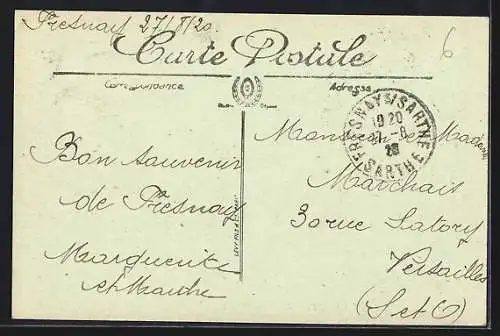 Fresnay 27/8/20
6
Carte Postale
Correspondance
Adresse
FRESNAY S/SARTHE
19 20
27 - 8
SARTHE
Bon souvenir
de Fresnay
Marguerite
et Marthe
Monsieur et Madame
Marchais
30 rue Satory
Versailles
(S et O)